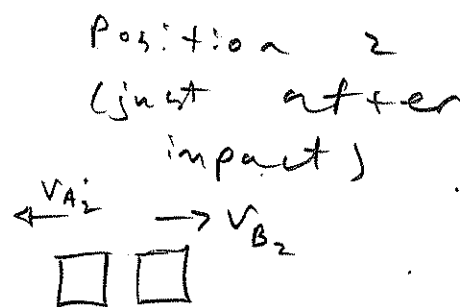 Position 2
(just after
impact)
V_A2 V_B2